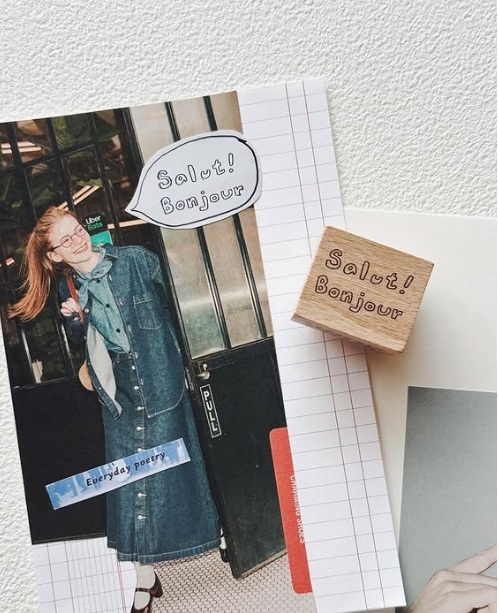 Salut!
Bonjour
Salut!
Bonjour
Uber
Eats
PULL
Everyday poetry
CHARMING SHOES